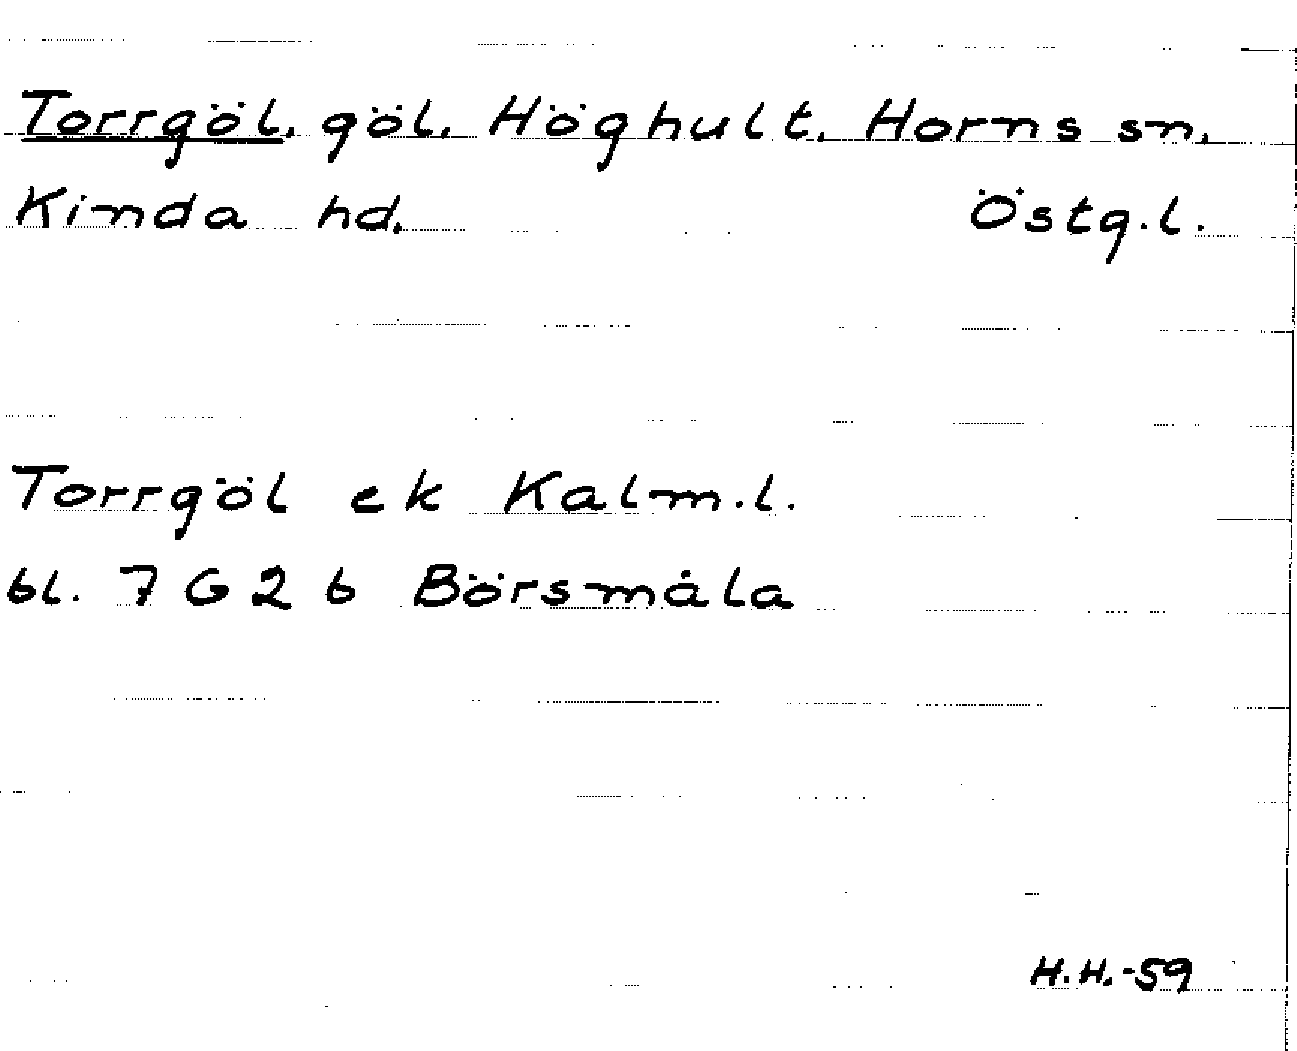 Torrgöl. göl. Höghult. Horns sn.
Kinda hd. Östg.l.
Torrgöl ek Kalm.l.
bl. 7 G 2 b Börsmåla
H.H.-59